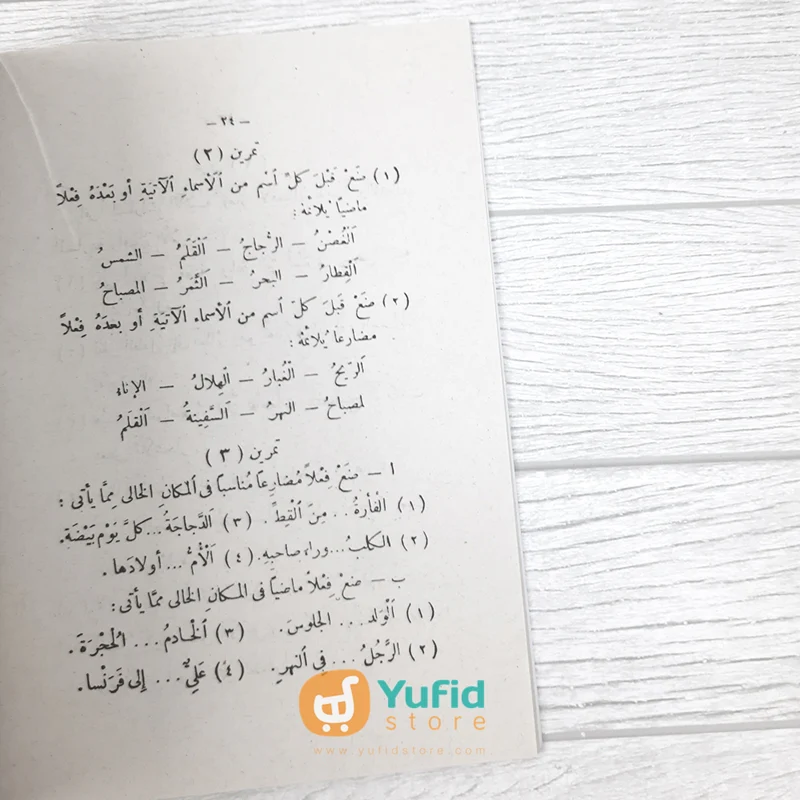 — ٢٤ —
تمرين (٢)
(١) ضَعْ قَبْلَ كلِّ ٱسْم من ٱلْأسماءِ ٱلْآتيَةِ أو بَعْدَهُ فِعْلاً
ماضياً يُلائمُهُ :
اَلْغُصْنُ — الزُّجاجُ — اَلْقَلَمُ — الشمسُ
اَلْقِطارُ — البحرُ — اَلثَّمَرُ — المصباحُ
(٢) ضَعْ قَبلَ كلِّ اسم من ٱلْأسماء ٱلْآتِيَةِ أو بعدَهُ فِعْلاً
مضارعاً يُلائمُهُ :
اَلرِّيحُ — اَلْغُبارُ — اَلْهِلالُ — الإناء
لمصباحُ — النهرُ — اَلسَّفِينةُ — اَلْقَلَمُ
تمرين (٣)
ا — ضَعْ فِعْلاً مُضارِعاً مُناسباً فى ٱلمكانِ الخالى مِمَّا يأتى :
(١) اَلْفأرةُ . . . مِنَ ٱلْقِطِّ . (٣) اَلدَّجاجَةُ ... كلَّ يَوْمٍ بَيْضَةً .
(٢) الكلبُ ... وراء صاحبِهِ . (٤) اَلْأُمُّ ... أولادَها .
ب — ضَعْ فِعْلاً ماضياً فى المكانِ الخالى ممّا يأتى :
(١) اَلْوَلد . . . الجلوسَ . (٣) اَلْخادمُ . . . اَلْحُجْرَةَ .
(٢) الرَّجُلُ . . . فِى ٱلنهرِ . (٤) عَلِيٌّ . . . إلى فَرَنْسا .
Yufid
store
www.yufidstore.com